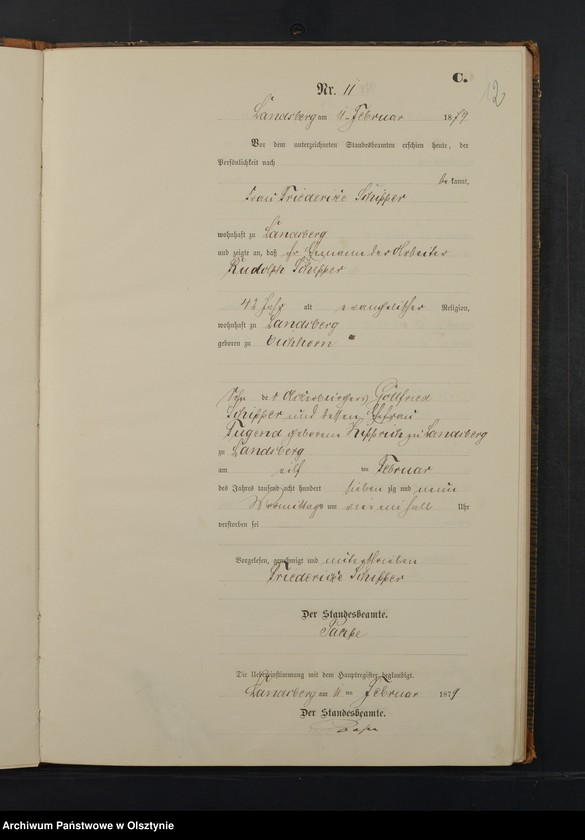 C.
12
Nr. 11
Landsberg am 11ten Februar 1879
Vor dem unterzeichneten Standesbeamten erschien heute, der
Persönlichkeit nach
be kannt,
Frau Friederike Schipper
wohnhaft zu Landsberg
und zeigte an, daß ihr Ehemann der Arbeiter
Rudolph Schipper
42 Jahr alt evangelischer Religion,
wohnhaft zu Landsberg
geboren zu Eichhorn
Sohn des Ackerbürgers Gottfried
Schipper und dessen Ehefrau
Tugend geborene zu Landsberg
zu Landsberg
am elf ten Februar
des Jahres tausend acht hundert sieben zig und neun
Vormittags um ein halb Uhr
verstorben sei
Vorgelesen, genehmigt und unterschrieben
Friederike Schipper
Der Standesbeamte.
Die Uebereinstimmung mit dem Hauptregister beglaubigt.
Landsberg am 11 ten Februar 1879
Der Standesbeamte.
Archiwum Państwowe w Olsztynie